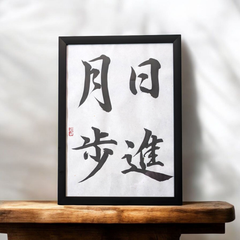 日進
月歩